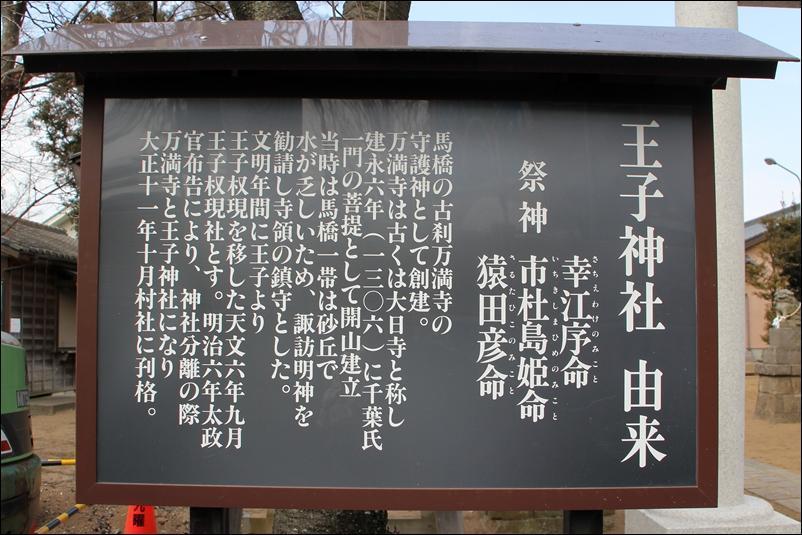 王子神社 由来
祭神
幸江序命
さちえわけのみこと
市杜島姫命
いちきしまひめのみこと
猿田彦命
さるたひこのみこと
馬橋の古刹万満寺の
守護神として創建。
万満寺は古くは大日寺と称し
建永六年(一三〇六)に千葉氏
一門の菩提として開山建立
当時は馬橋一帯は砂丘で
水が乏しいため、諏訪明神を
勧請し寺領の鎮守とした。
文明年間に王子より
王子権現を移した天文六年九月
王子权現社とす。明治六年太政
官布告により、神社分離の際
万満寺と王子神社になり
大正十一年十月村社に列格。
九曜